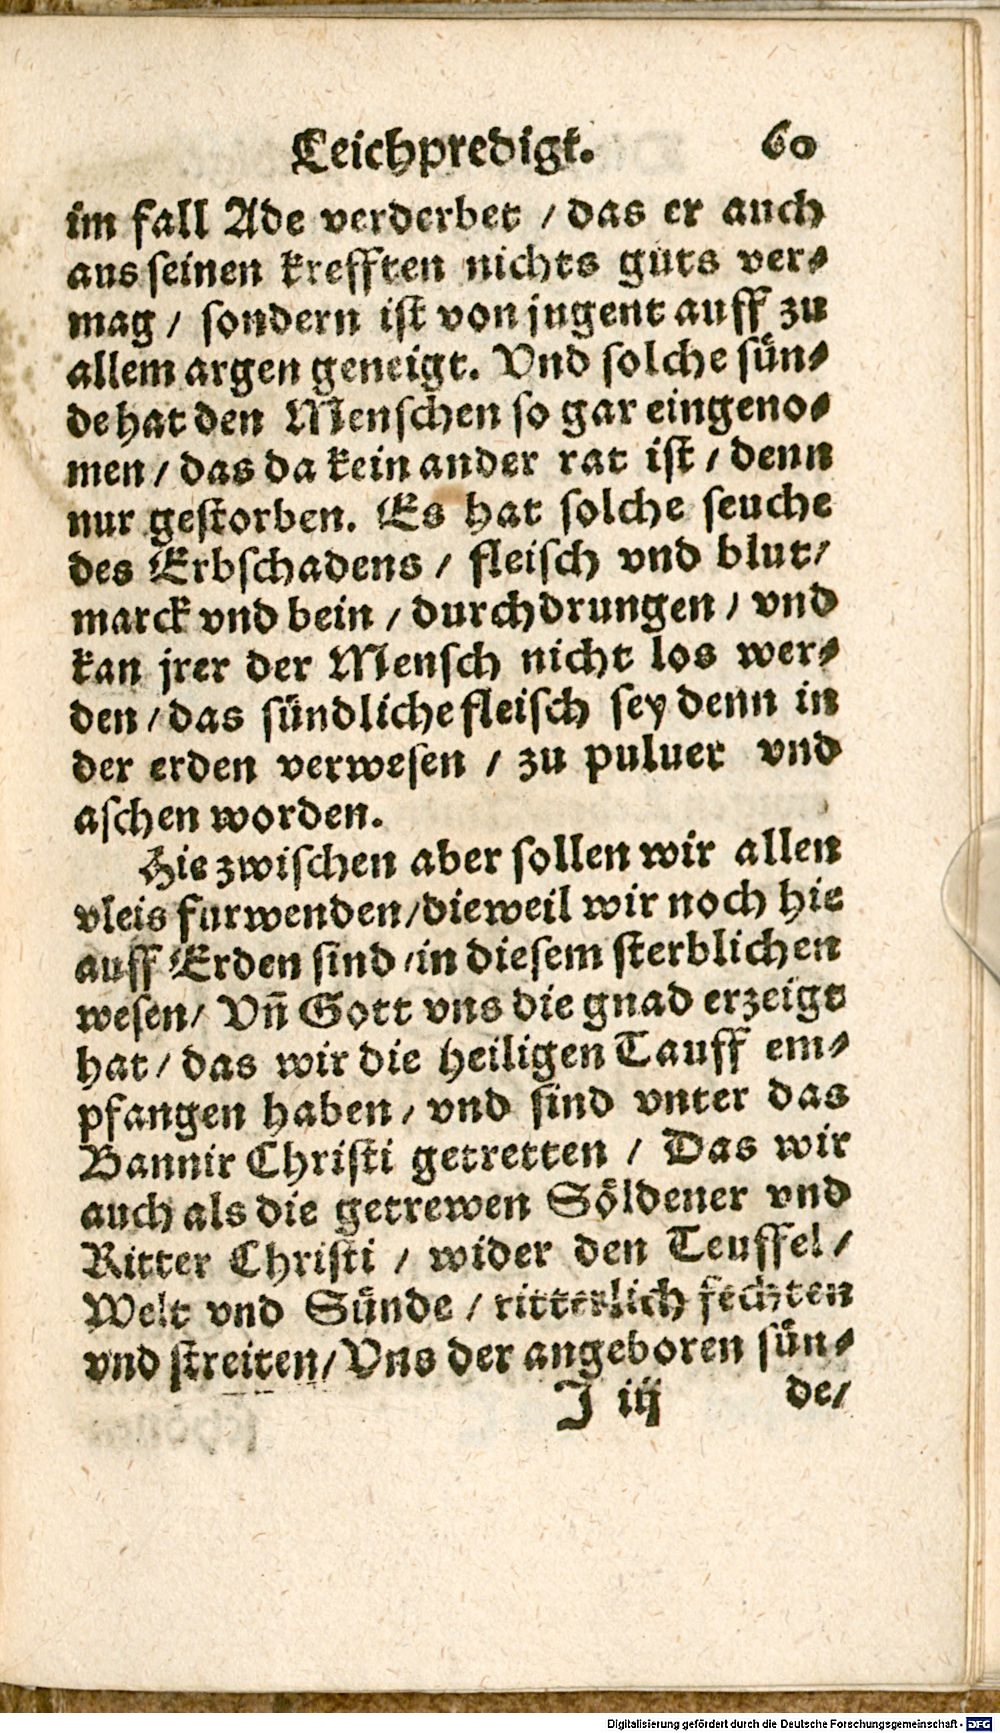 Leichpredigt. 60
im fall Ade verderbet / das er auch
aus seinen krefften nichts guts ver-
mag / sondern ist von jugent auff zu
allem argen geneigt. Vnd solche sün-
de hat den Menschen so gar eingeno-
men / das da kein ander rat ist / denn
nur gestorben. Es hat solche seuche
des Erbschadens / fleisch vnd blut /
marck vnd bein / durchdrungen / vnd
kan jrer der Mensch nicht los wer-
den / das sündliche fleisch sey denn in
der erden verwesen / zu puluer vnd
aschen worden.
Hie zwischen aber sollen wir allen
vleis furwenden / dieweil wir noch hie
auff Erden sind / in diesem sterblichen
wesen / Vn̄ Gott vns die gnad erzeigt
hat / das wir die heiligen Tauff em-
pfangen haben / vnd sind vnter das
Bannir Christi getretten / Das wir
auch als die getrewen Söldener vnd
Ritter Christi / wider den Teuffel /
Welt vnd Sünde / ritterlich fechten
vnd streiten / Vns der angeboren sün-
J iij de /
Digitalisierung gefördert durch die Deutsche Forschungsgemeinschaft - DFG